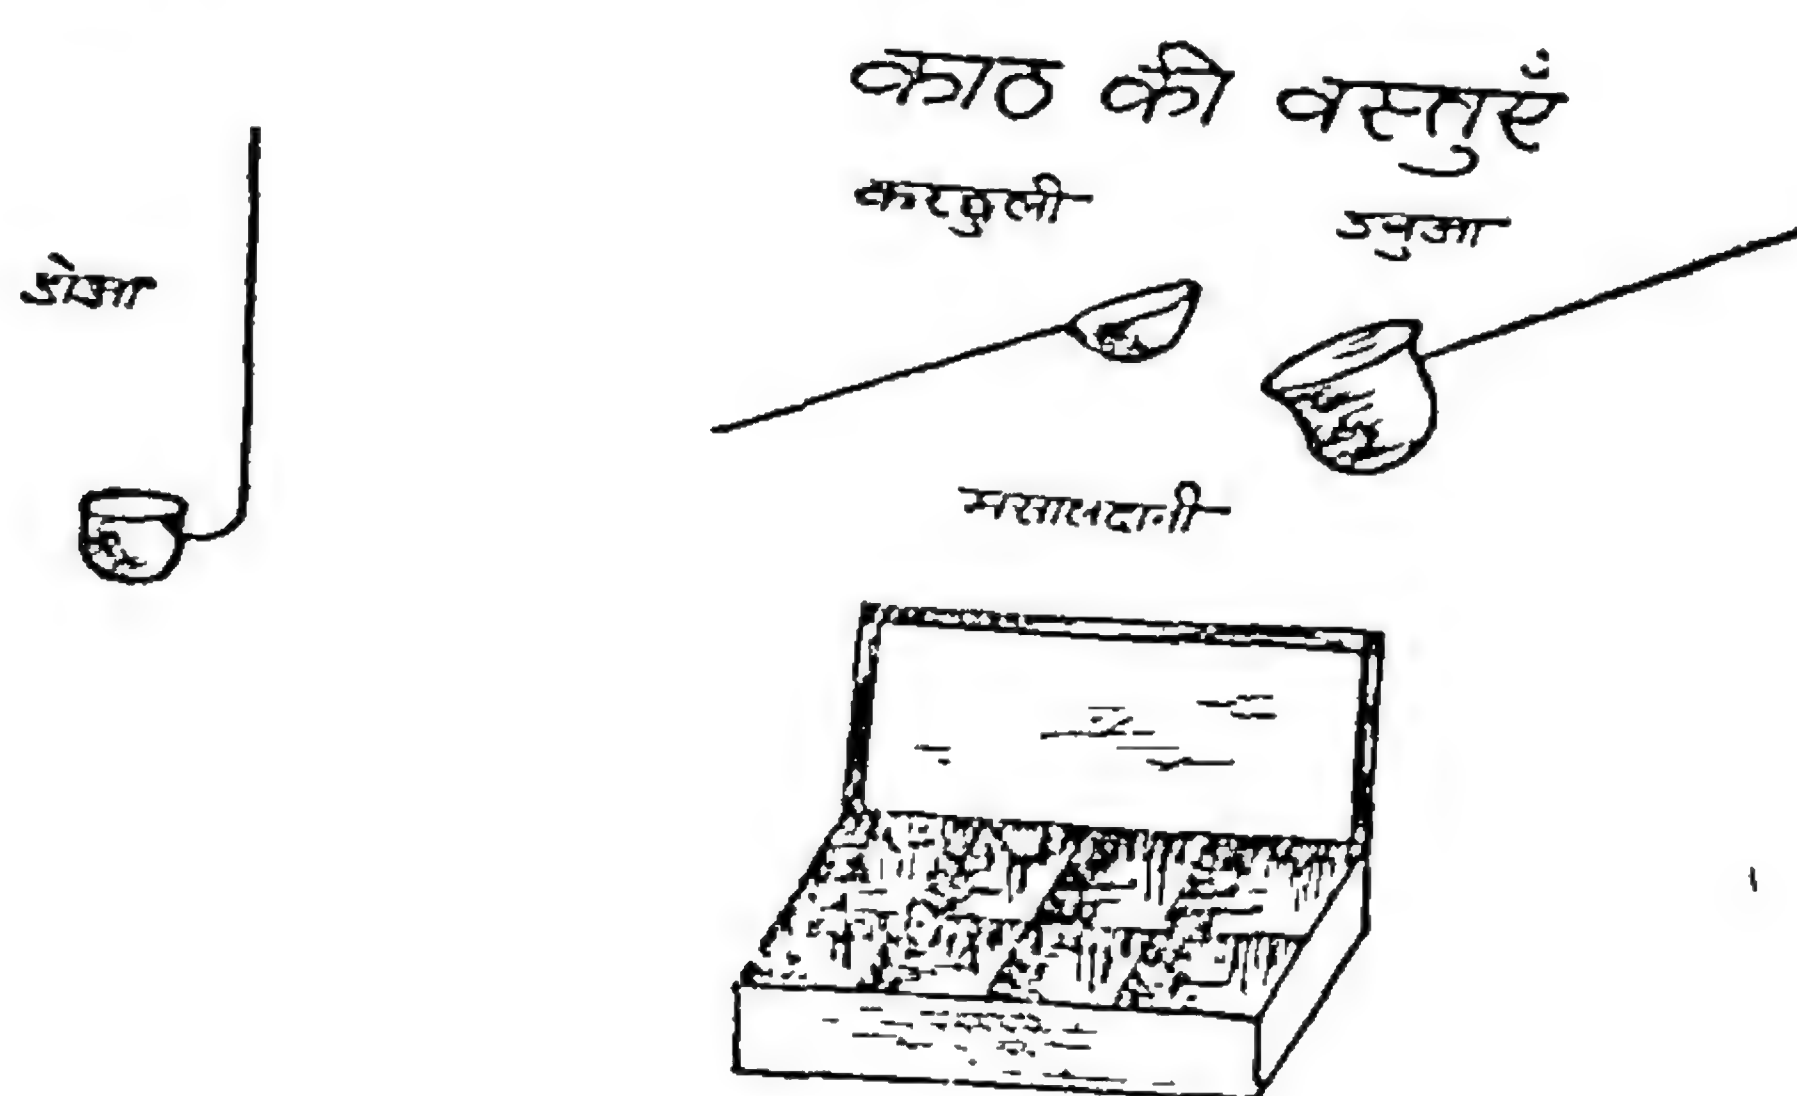 काठ की वस्तुएँ
करछुली
डबुआ
डोआ
मसालदानी